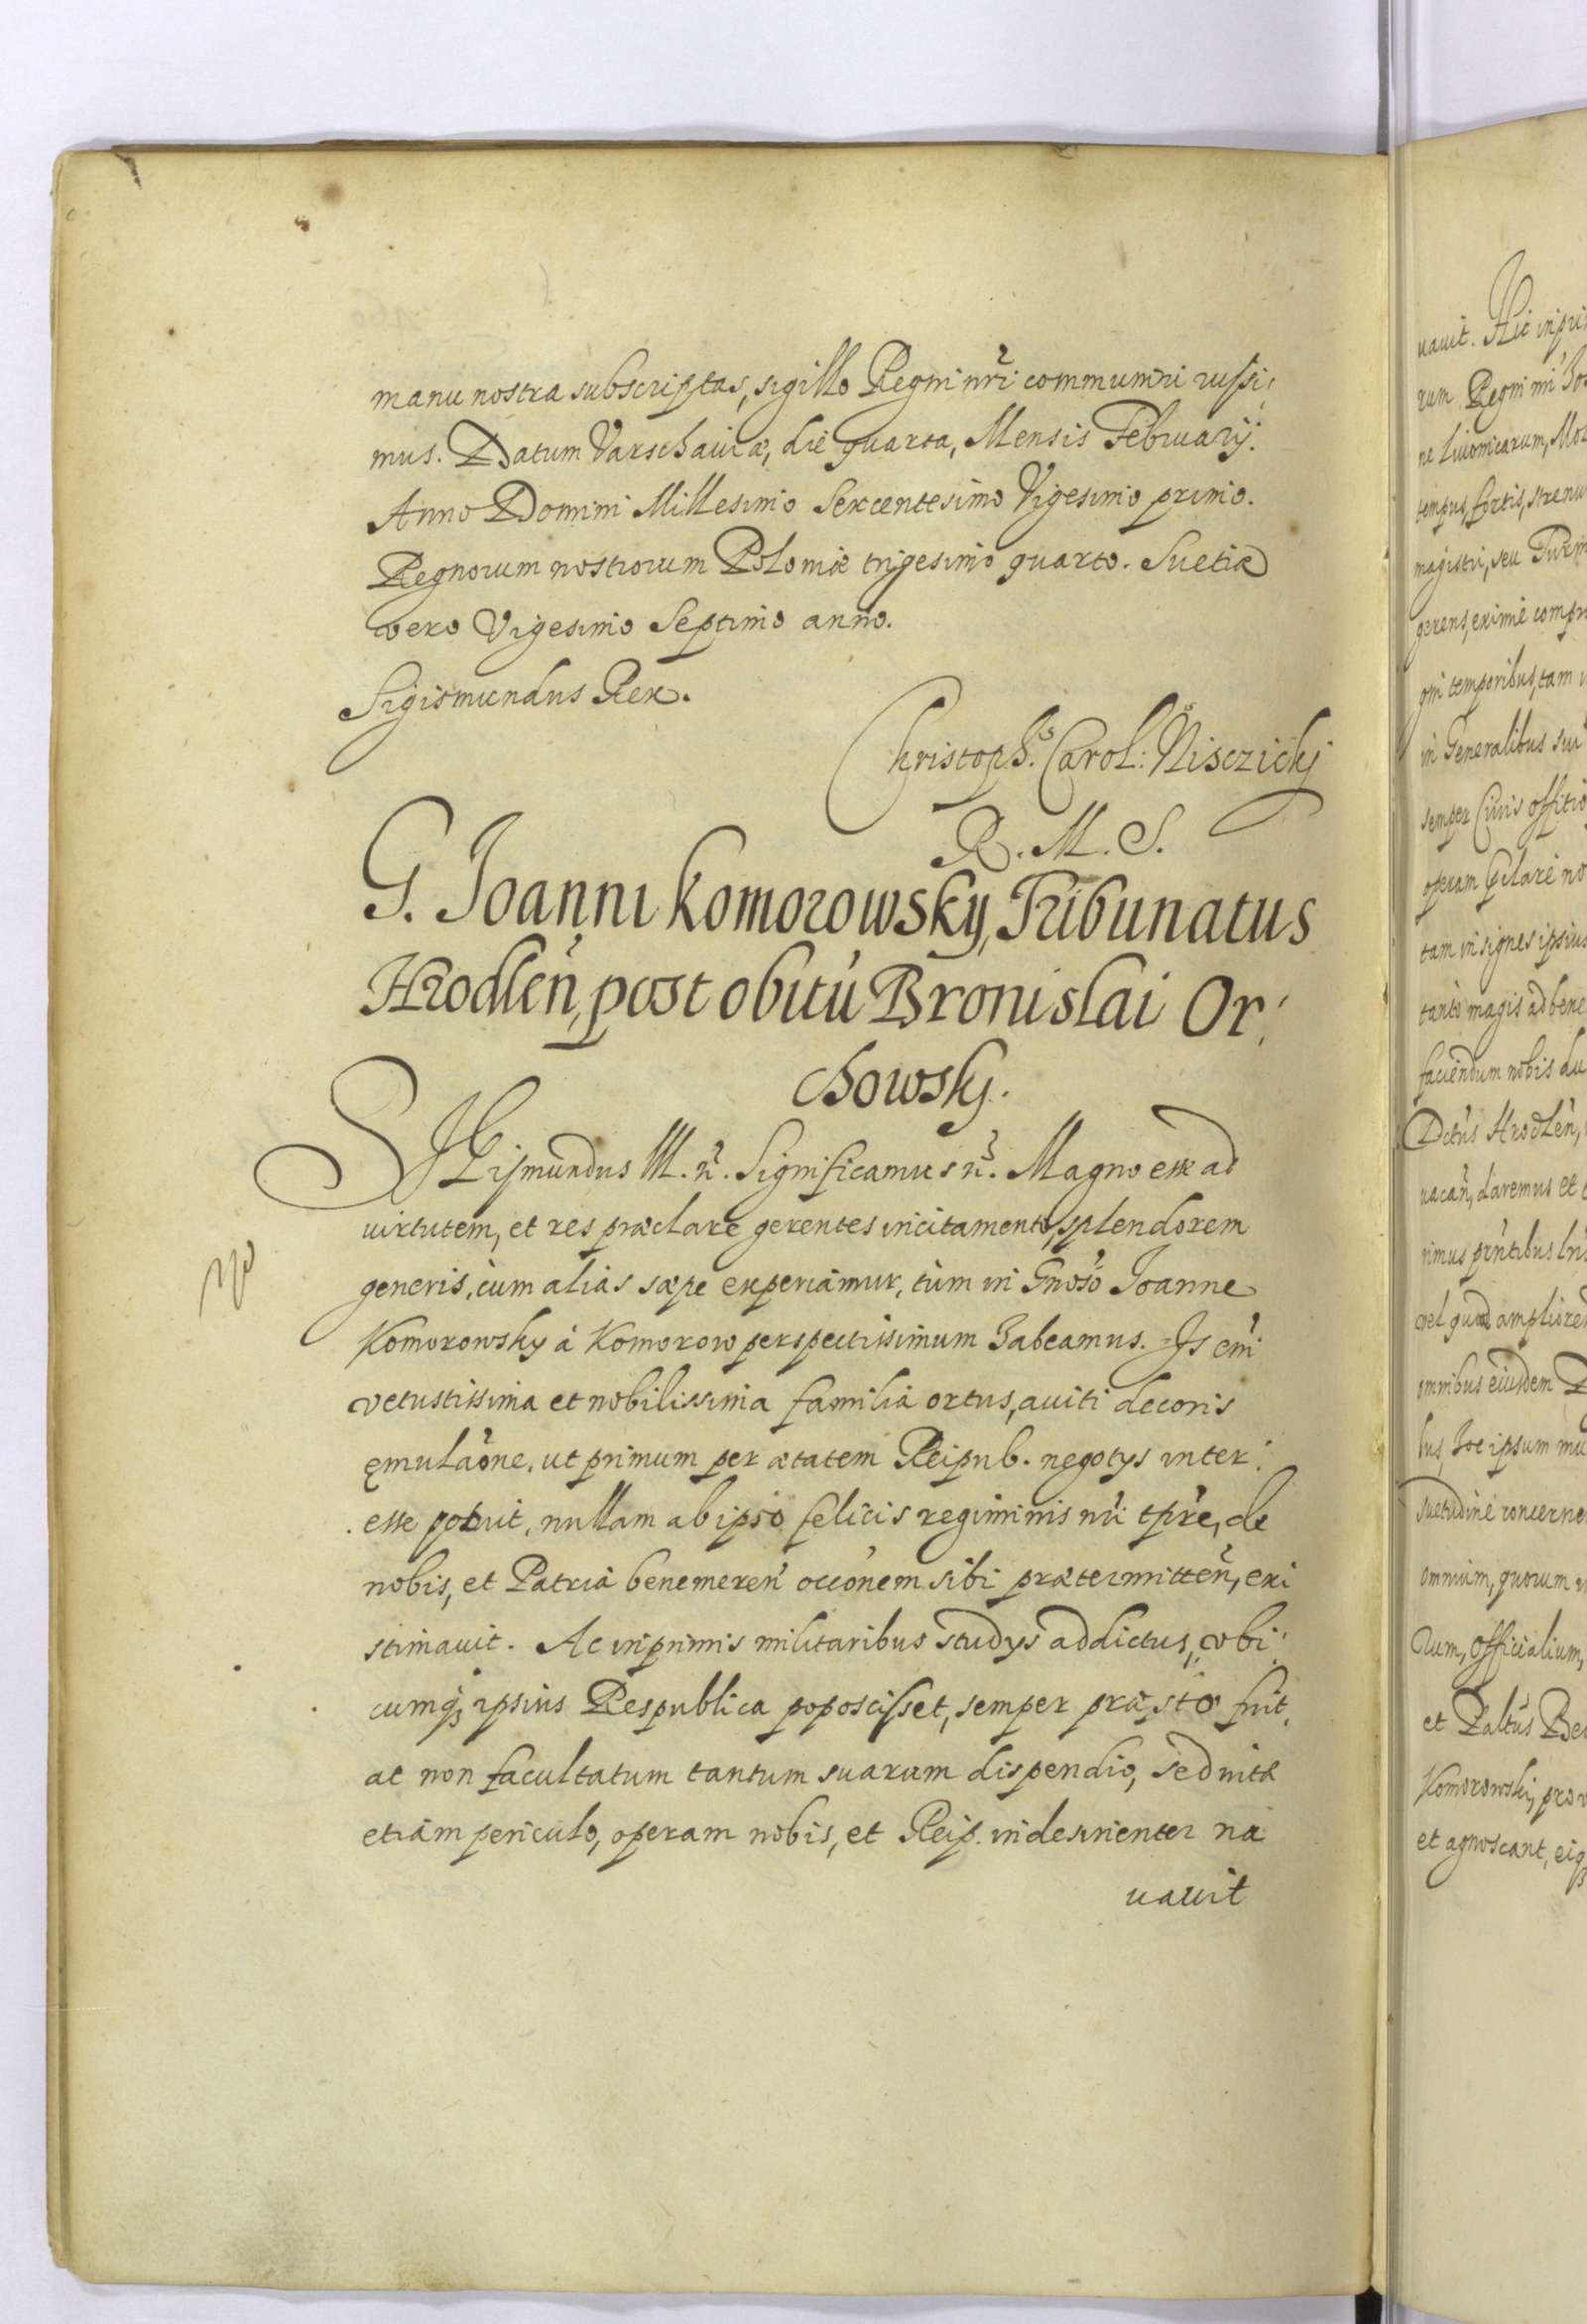 manu nostra subscriptas, sigillo Regni nr̃i communiri iussi,
mus. Datum Varschaviæ, die quarta, Mensis Februarij.
Anno Domini Millesimo Sexcentesimo Vigesimo primo.
Regnorum nostrorum Poloniæ trigesimo quarto. Suetiæ
vero Vigesimo Septimo anno.
Sigismundus Rex.
Christoph.s Carol: Nisczicky
R. M. S.
G. Joanni Komorowsky, Tribunatus
Hrodleñ, post obitũ Bronislai Or,
chowsky.
SIGismundus III. ñ. Significamus ñ. Magno esse ad
virtutem, et res præclare gerentes incitamento, splendorem
generis, cum alias sæpe experiamur, tùm in Gnoso Joanne
Komorowsky à Komorow perspectissimum habeamus. Is em̃
vetustissima et nobilissima familia ortus, aviti decoris
ęmulaõne, ut primum per ætatem Reipub. negotys inter,
esse potuit, nullam ab ipso felicis regiminis nr̃i tp̃re, de
nobis, et Patria benemereñ occõnem sibi prætermitteñ, exi
stimavit. Ac inprimis militaribus studys addictus, vbi,
cumq; ipsius Respublica poposcisset, semper præsto fuit,
ac non facultatum tantum suarum dispendio, sed vitæ
etiam periculo, operam nobis, et Reip. indesinenter na
uauit
uauit. Hic inpri
rum Regni nr̃i
ne Liuonicarum, Mos
tempus, fortis, strenu
magistri, seu Turm
gerens, eximiè comp
gni temporibus, tam
in Generalibus sui
semper Ciuis offitio
operam
tam insignes ipsius
tantò magis ad bene
faciendum nobis du
Dctũs Hrodleñ,
uacañ, daremus et
rimus pr̃ntibus lr̃is
vel quod ampliore
omnibus eiusdem D
lus, hoc ipsum mu
suetudine concerne
omnium, quorum
rum, officialium,
et Palt̃us Be
Komorowsky, pro v
et agnoscant, eiq;